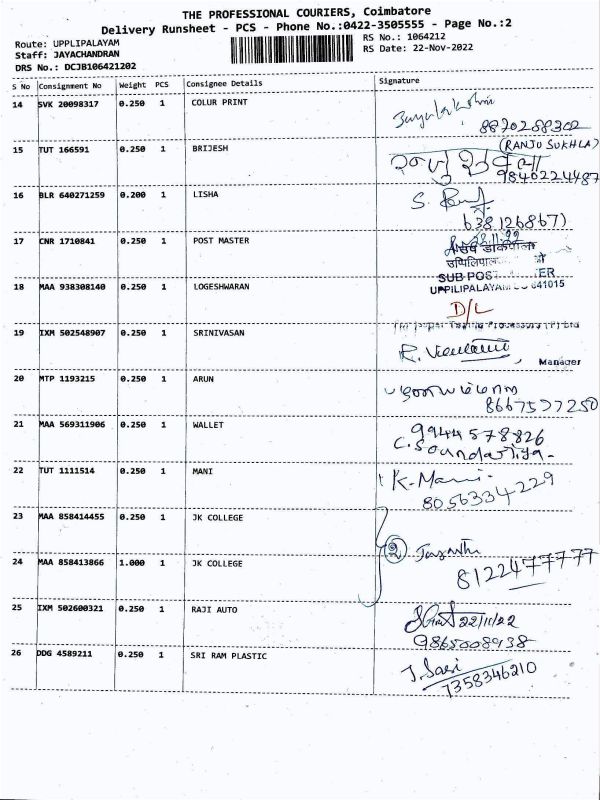 THE PROFESSIONAL COURIERS, Coimbatore
Delivery Runsheet - PCS - Phone No.:0422-3505555 - Page No.:2
Route: UPPLIPALAYAM
Staff: JAYACHANDRAN
DRS No.: DCJB106421202
RS No.: 1064212
RS Date: 22-Nov-2022
S No Consignment No Weight PCS Consignee Details Signature
14 SVK 20098317 0.250 1 COLUR PRINT
8870288302
15 TUT 166591 0.250 1 BRIJESH
(RANJU SUKHLA)
9840224487
16 BLR 640271259 0.200 1 LISHA
S.
638126867)
17 CNR 1710841 0.250 1 POST MASTER
SUB POST
UPPILIPALAYAM 641015
18 MAA 938308140 0.250 1 LOGESHWARAN
D/L
19 IXM 502548907 0.250 1 SRINIVASAN
R.
Manager
20 MTP 1193215 0.250 1 ARUN
8667597250
21 MAA 569311906 0.250 1 WALLET
9944578826
C. Soundariya-
22 TUT 1111514 0.250 1 MANI
K-Mani-
8056334229
23 MAA 858414455 0.250 1 JK COLLEGE
24 MAA 858413866 1.000 1 JK COLLEGE
2 Jayanthi
8122477777
25 IXM 502600321 0.250 1 RAJI AUTO
22/11/22
9865008938
26 DDG 4589211 0.250 1 SRI RAM PLASTIC
J. Sasi
7358346210